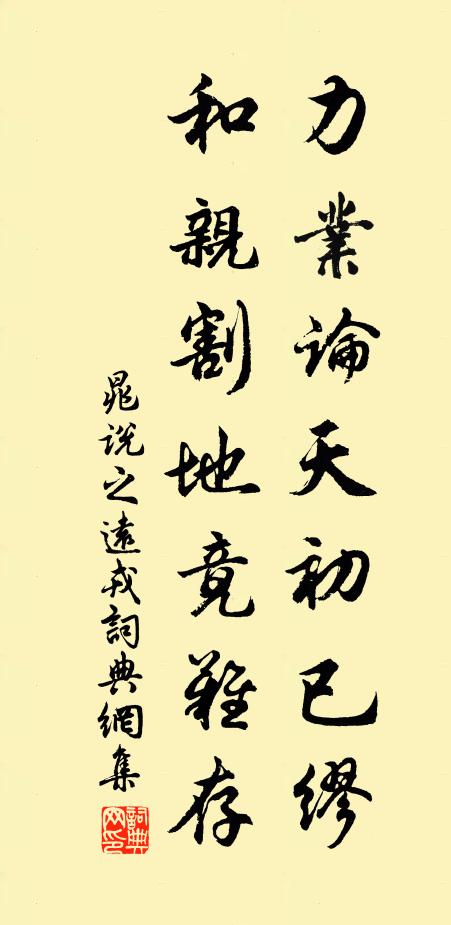 力業論天初已繆
和親割地竟難存
晁說之遠戎詞典網集
詞典網印